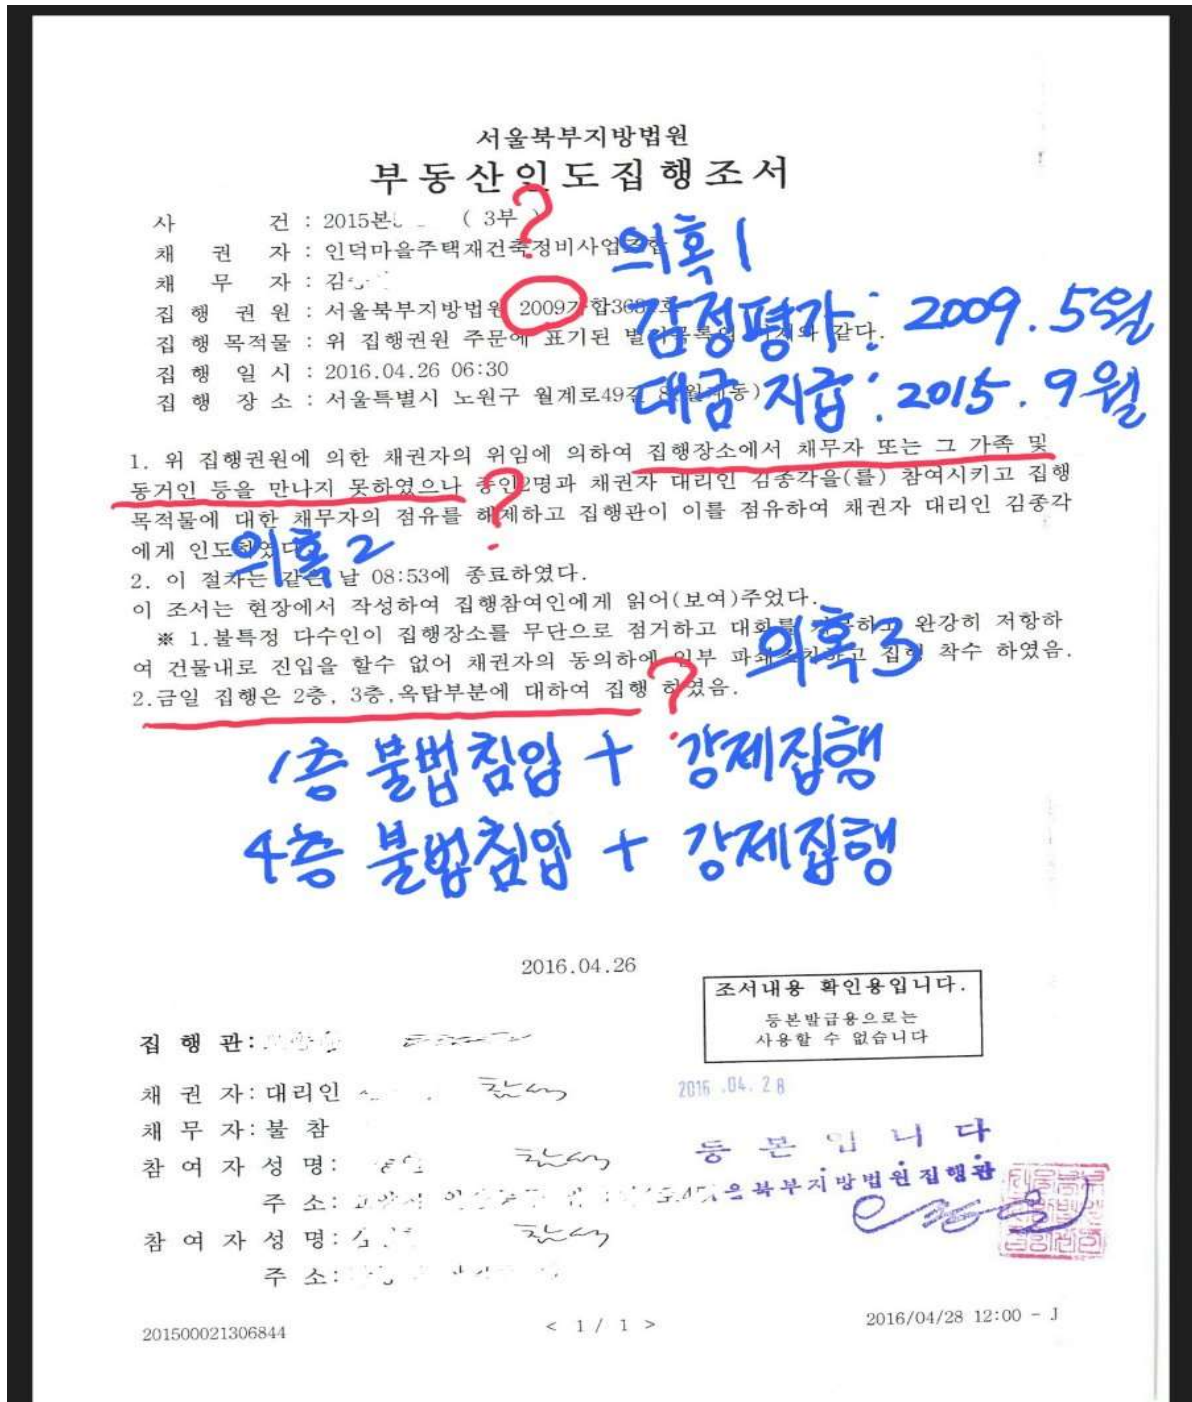 서울북부지방법원
부동산인도집행조서
?
사 건 : 2015본 ( 3부 )
채 권 자 : 인덕마을주택재건축정비사업조합
의혹 1
채 무 자 : 김
집 행 권 원 : 서울북부지방법원 2009가합36
감정평가: 2009. 5월
집 행 목적물 : 위 집행권원 주문에 표기된 같다.
집 행 일 시 : 2016.04.26 06:30
대금 지급: 2015. 9월
집 행 장 소 : 서울특별시 노원구 월계로49길
1. 위 집행권원에 의한 채권자의 위임에 의하여 집행장소에서 채무자 또는 그 가족 및
동거인 등을 만나지 못하였으나 증인2명과 채권자 대리인 김종각을(를) 참여시키고 집행
?
목적물에 대한 채무자의 점유를 해제하고 집행관이 이를 점유하여 채권자 대리인 김종각
에게 인도하였다.
의혹 2
2. 이 절차는 같은 날 08:53에 종료하였다.
이 조서는 현장에서 작성하여 집행참여인에게 읽어(보여)주었다.
※ 1.불특정 다수인이 집행장소를 무단으로 점거하고 대화를 완강히 저항하
의혹 3
여 건물내로 진입을 할수 없어 채권자의 동의하에 일부 집행 착수 하였음.
2.금일 집행은 2층, 3층,옥탑부분에 대하여 집행 하였음.
?
1층 불법침입 + 강제집행
4층 불법침입 + 강제집행
2016.04.26
조서내용 확인용입니다.
등본발급용으로는
사용할 수 없습니다
집 행 관:
채 권 자: 대리인
2016 .04. 28
채 무 자: 불 참
등 본 입 니 다
참 여 자 성 명:
주 소:
북부지방법원집행관
참 여 자 성 명:
주 소:
201500021306844
< 1 / 1 >
2016/04/28 12:00 - J